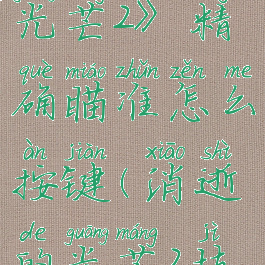 光芒2》 精
què miáo zhǔn zěn me
确瞄准怎么
àn jiàn xiāo shì
按键(消逝
de guāng máng jì
的光芒2技